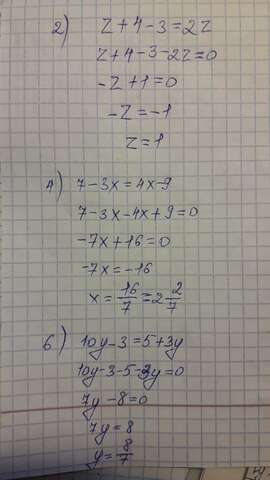 2) z+4-3=2z
z+4-3-2z=0
-z+1=0
-z=-1
z=1
4) 7-3x=4x-9
7-3x-4x+9=0
-7x+16=0
-7x=-16
x=16/7=2 2/7
6) 10y-3=5+3y
10y-3-5-3y=0
7y-8=0
7y=8
y=8/7